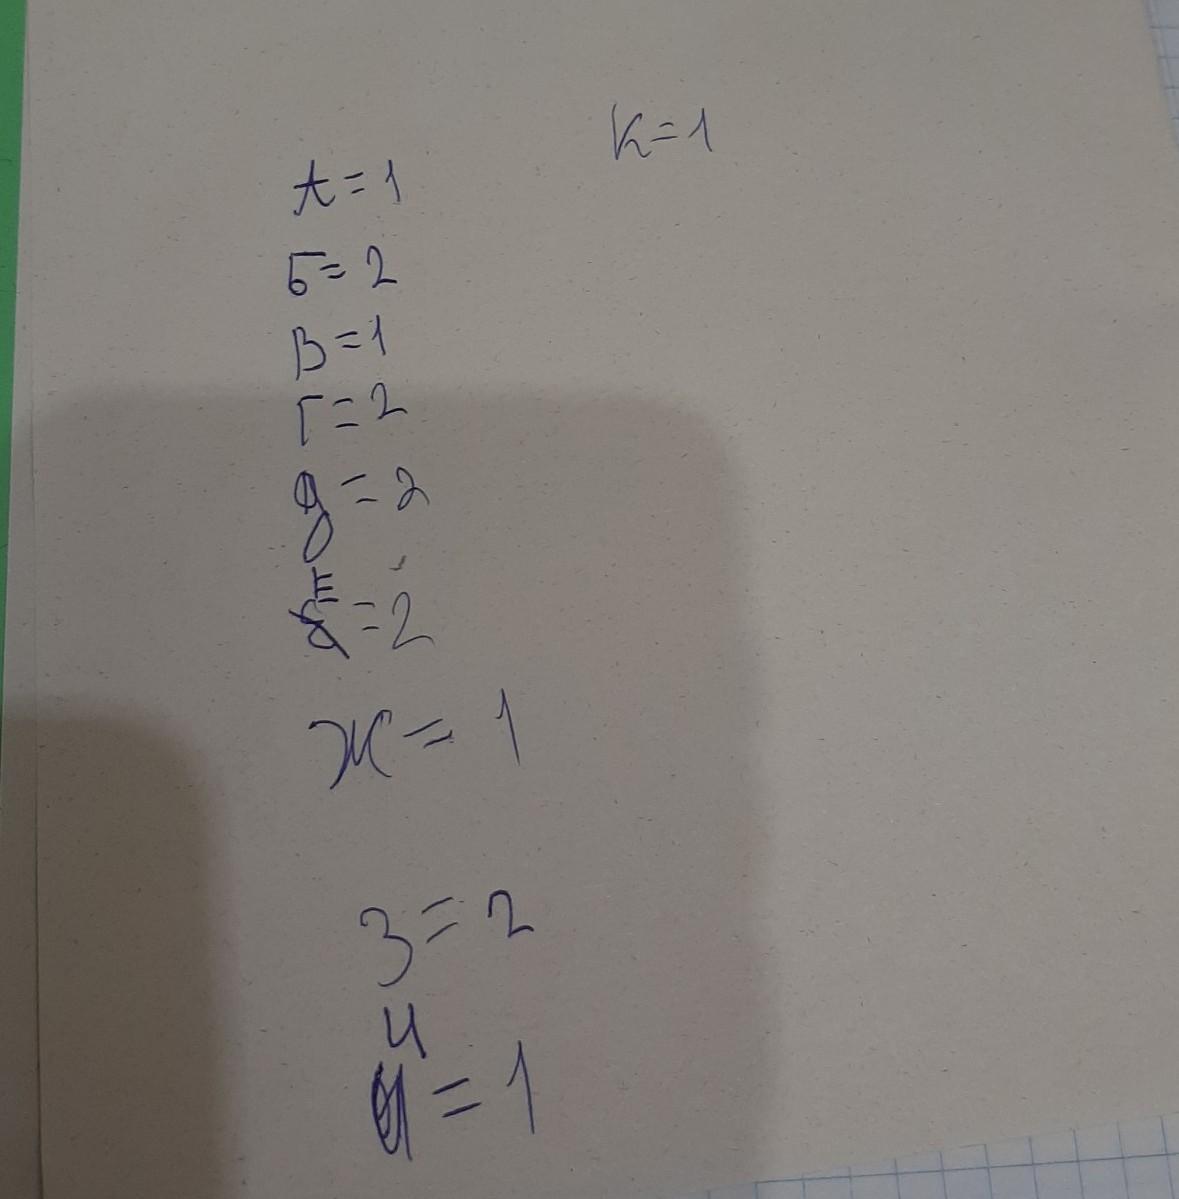 К=1
А=1
Б=2
В=1
Г=2
д=2
Е=2
Ж=1
З=2
И=1